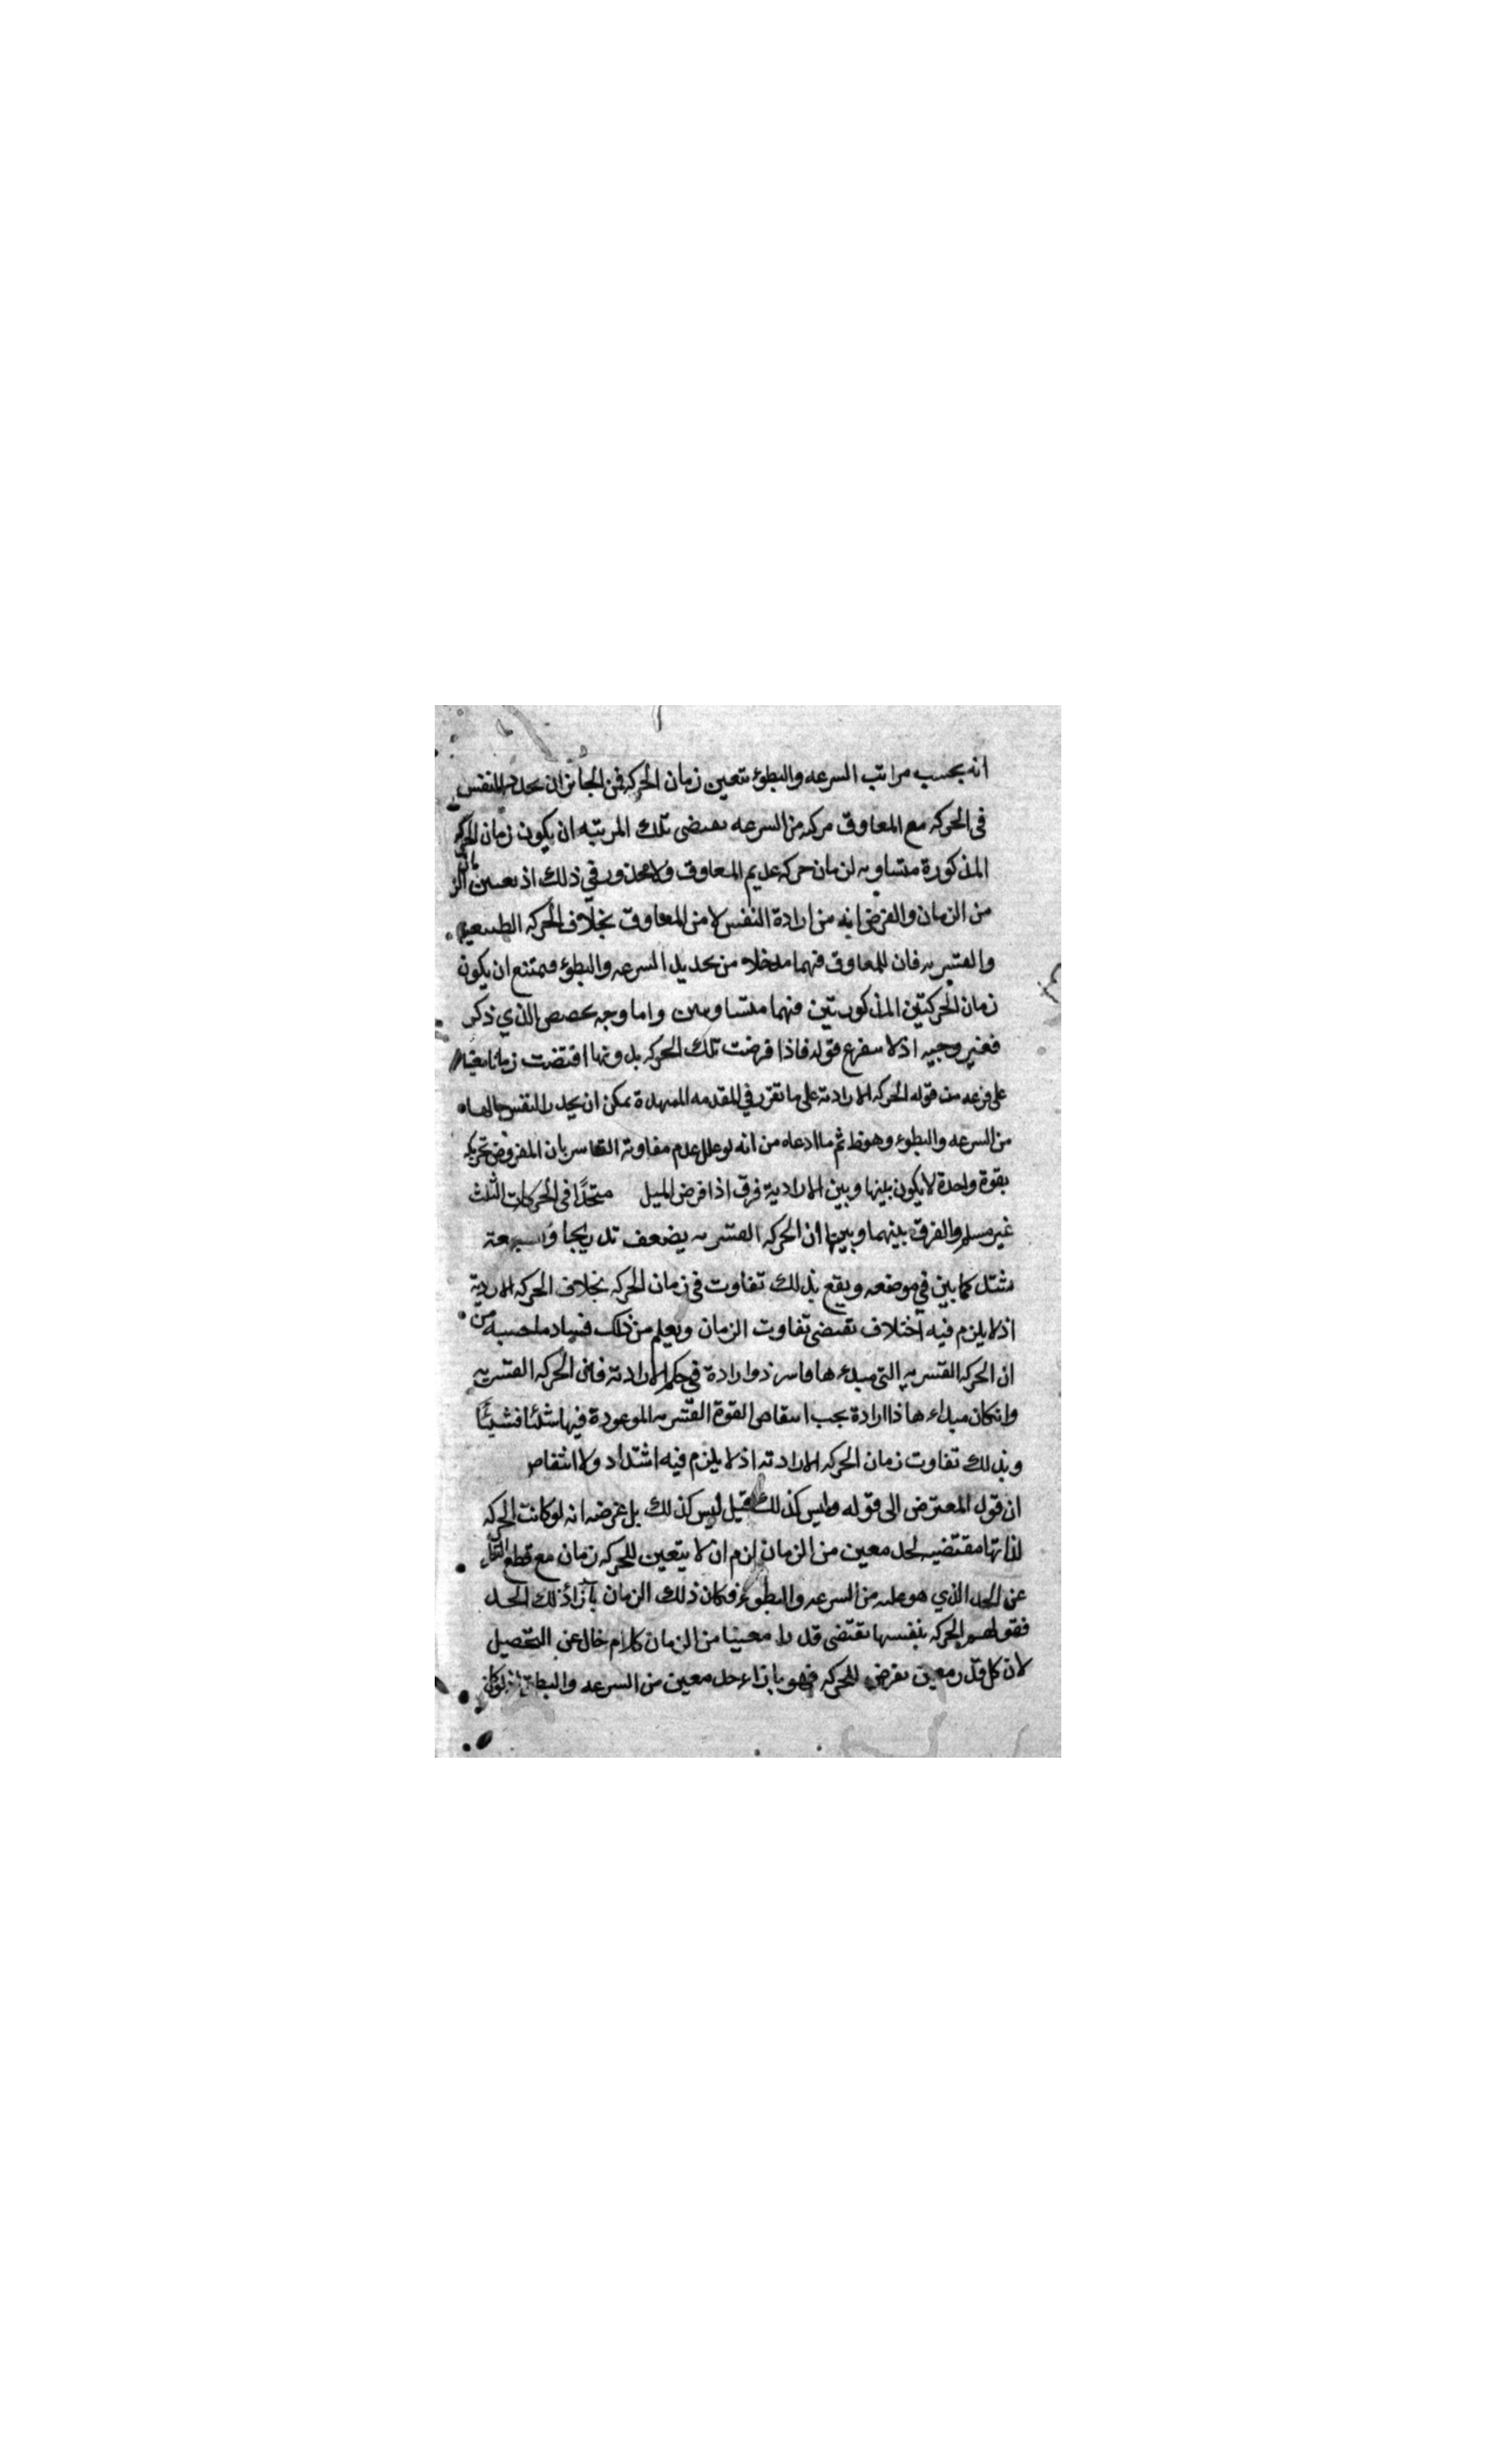 انه بحسب مراتب السرعه والبطوء تتعين زمان الحركه فمن الجائز ان يحدد النفس
فى الحركه مع المعاوق مركه من السرعه يقتضى تلك المرتبه ان يكون زمان الحركه
المذكورة متساويه لزمان حركه عديم المعاوق ولا محذور في ذلك اذ تعيين
من الزمان والفرض انه من ارادة النفس لا من المعاوق بخلاف الحركه الطبيعيه
والقسريه فان للمعاوق فيهما مدخلا من تحديد السرعه والبطوء فيمتنع ان يكون
زمان الحركتين المذكورتين فيهما متساويين واما وجه تخصص الذي ذكر
فغير وجيه اذ لا يتفرع قوله فاذا فرضت تلك الحركه بدونها اقتضت زمانا
على فرعه من قوله الحركه الارادية على ما تقرر في المقدمه الممهدة يمكن ان يحدد النفس حالها
من السرعه والبطوء وهو ظ ثم ما ادعاه من انه لو علل عدم مفاوته القاسر بان المفروض تحريكه
بقوة واحدة لا يكون بينها وبين الارادية فرق اذا فرض الميل متحدًا فى الحركات الثلث
غير مسلم والفرق بينهما وبينها ان الحركه القسريه يضعف تدريجا
تشتد كما بين في موضعه ويقع بذلك تفاوت في زمان الحركه بخلاف الحركه الاردية
اذ لا يلزم فيه اختلاف تقتضى تفاوت الزمان ويعلم من ذلك فساد ما حسبه من
ان الحركه القسريه التى مبدء ها قاسر ذو ارادة في حكم الارادية فان الحركه القسريه
وانكان مبداء ها ذا ارادة يجب انتقاص القوة القسريه الموعودة فيها شئا فشيئًا
وبذلك تفاوت زمان الحركه الارادية اذ لا يلزم فيه اشتداد ولا انتقاص
ان قول المعترض الى قوله وليس كذلك قيل ليس كذلك بل غرضه انه لو كانت الحركه
لذاتها مقتضيه لحد معين من الزمان لزم ان لا يتعين للحركه زمان مع قطع النظر
عن الحد الذي هو عليه من السرعه والبطوء فكان ذلك الزمان بآزاء ذلك الحد
فقولهم الحركه بنفسها تقتضى قدرا معينا من الزمان كلام خال عن التحصيل
لان كل قدر معين يفرض للحركه فهو بازاء حد معين من السرعه والبطؤ